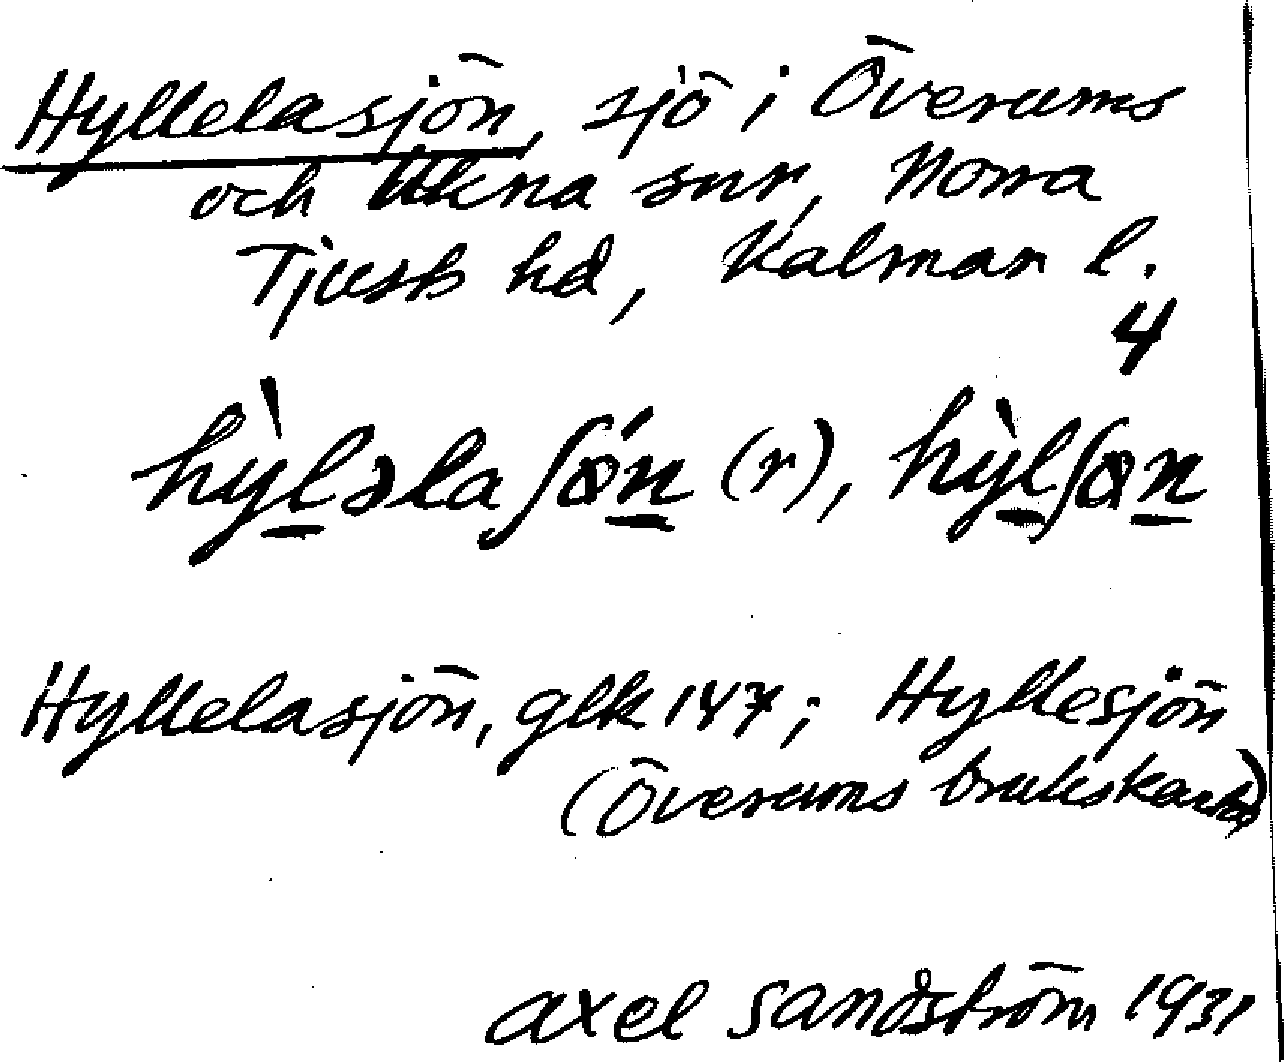 Hyllelasjön, sjö i Överums
och Ukna snr, Norra
Tjusts hd, Kalmar l.
4
hỳl̠əlaʃǿn̠ (r), hỳl̠ʃøn̠
Hyllelasjön, glk 147; Hyllesjön
(Överums brukskarta)
Axel Sandström 1931